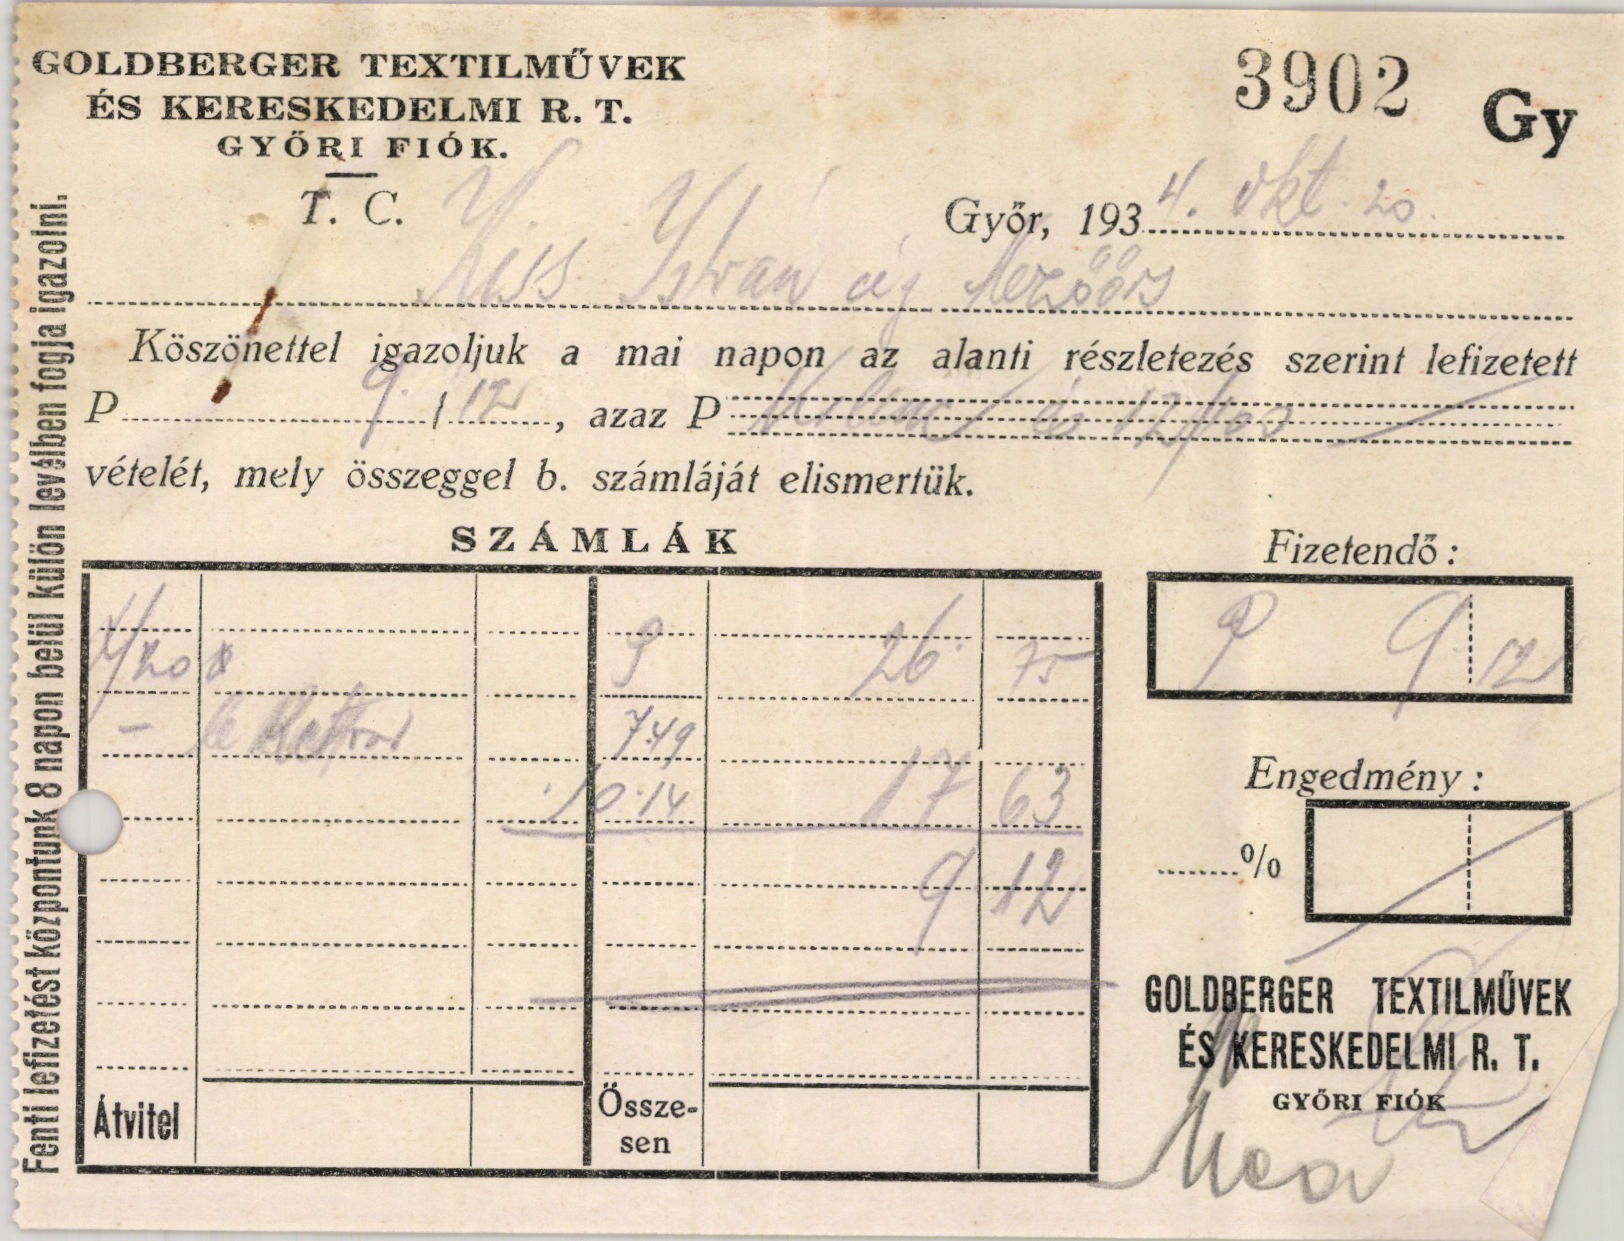 GOLDBERGER TEXTILMŰVEK
ÉS KERESKEDELMI R. T.
GYŐRI FIÓK.
3902 Gy
T. C.
Győr, 1934. okt. 20.
Kiss István cég Mezőörs
Köszönettel igazoljuk a mai napon az alanti részletezés szerint lefizetett
P 9 / 12, azaz P Kilenc és 12/100
vételét, mely összeggel b. számláját elismertük.
SZÁMLÁK
P 26 75
7.49
10.14 17 63
9 12
Átvitel
Össze-
sen
Fizetendő:
P 9 12
Engedmény:
%
GOLDBERGER TEXTILMŰVEK
ÉS KERESKEDELMI R. T.
GYŐRI FIÓK
Fenti lefizetést központunk 8 napon belül külön levélben fogja igazolni.